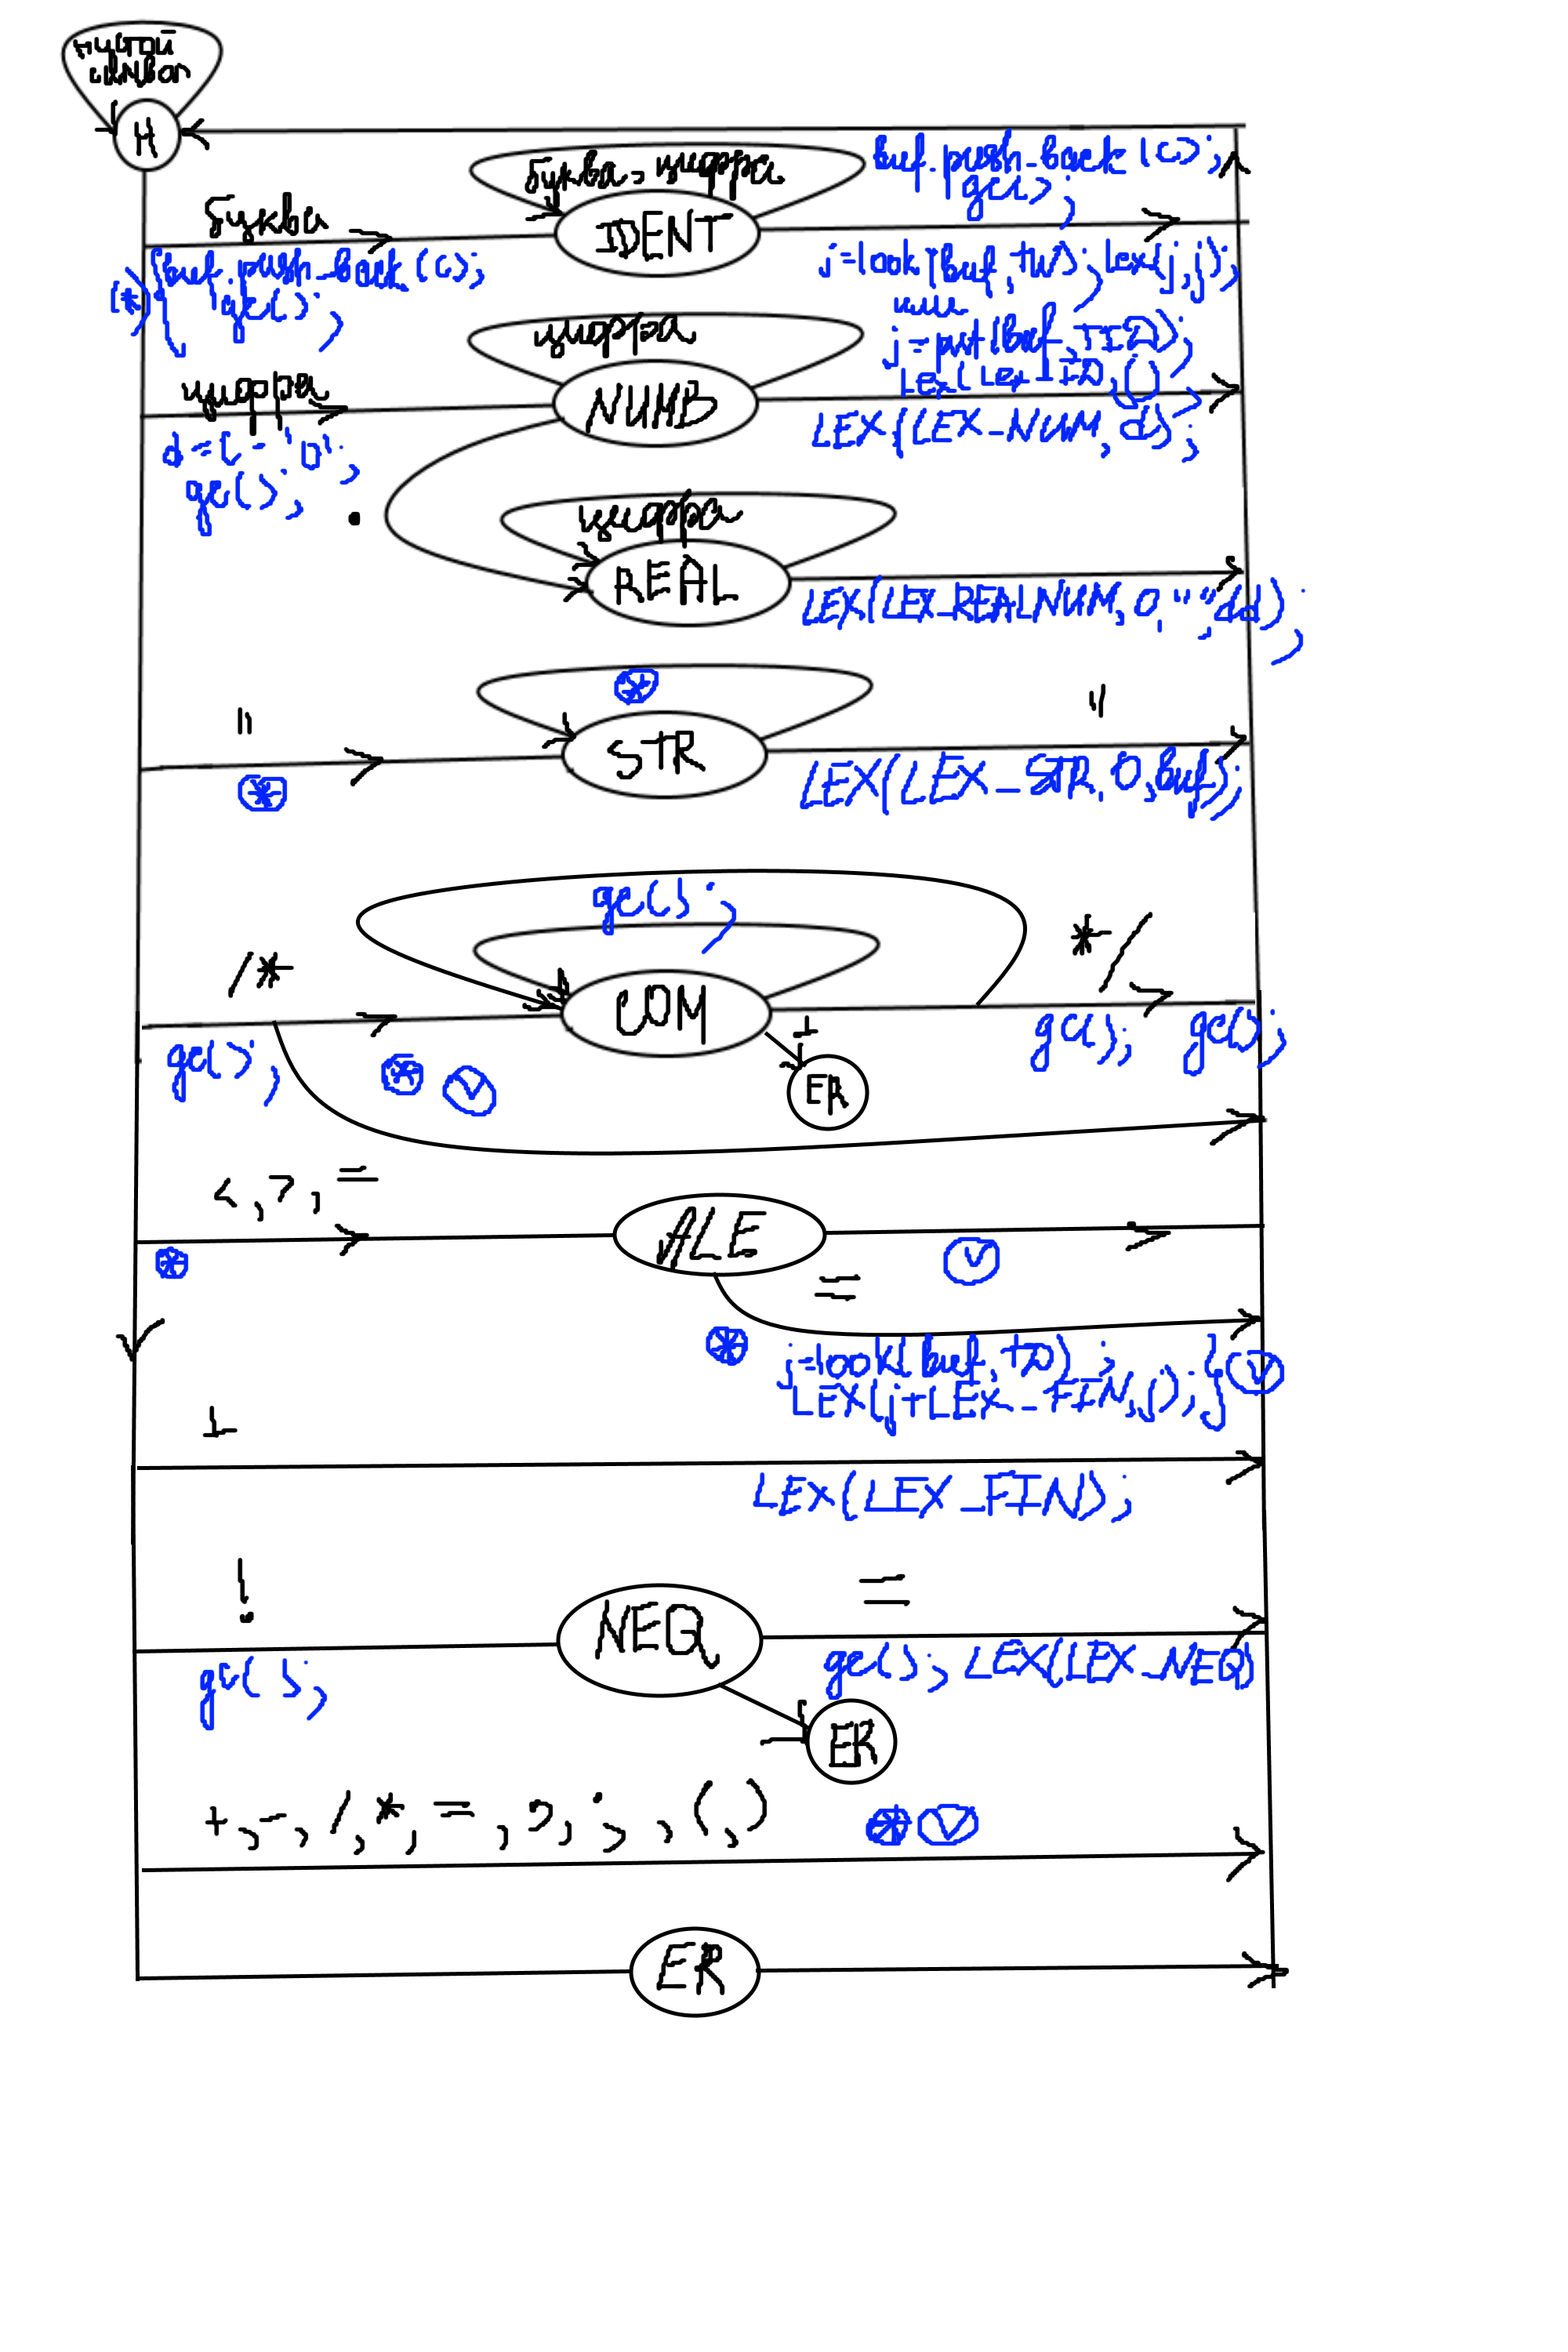 символ
H
буква, цифра
buf.push_back(c);
gc();
буква
IDENT
(*) { buf.push_back(c);
gc();
j=look(buf,TW); lex(j,j);
или
j=put(buf,TID);
цифра
цифра
NUMB
d=c-'0';
gc();
LEX(LEX_NUM, d);
.
цифра
REAL
LEX(LEX_REALNUM, 0, "", dd);
*
"
"
STR
*
LEX(LEX_STR, 0, buf);
gc();
/*
*/
COM
gc();
* V
⊥
ER
gc(); gc();
<, >, =
ALE
*
V
=
*
j=look(buf, TD);
LEX(j+LEX_FIN,j); } V
⊥
LEX(LEX_FIN);
!
=
NEQ
gc();
gc(); LEX(LEX_NEQ)
ER
* V
ER